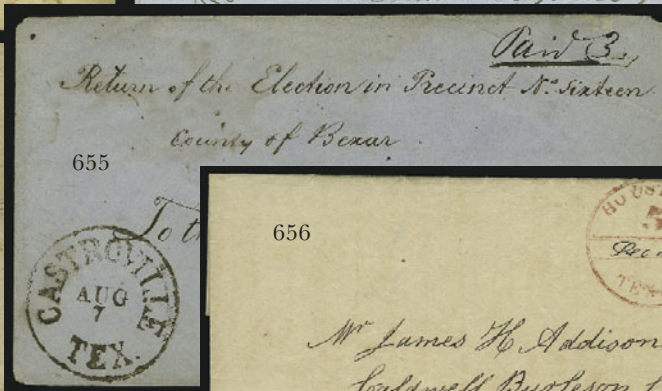 Paid 3
Return of the Election in Precinct No. Sixteen
County of Bexar
655
To
CASTROVILLE
AUG
7
TEX.
656
HOUS
5
Dec
TEX
Mr James H Addison
Caldwell Burleson